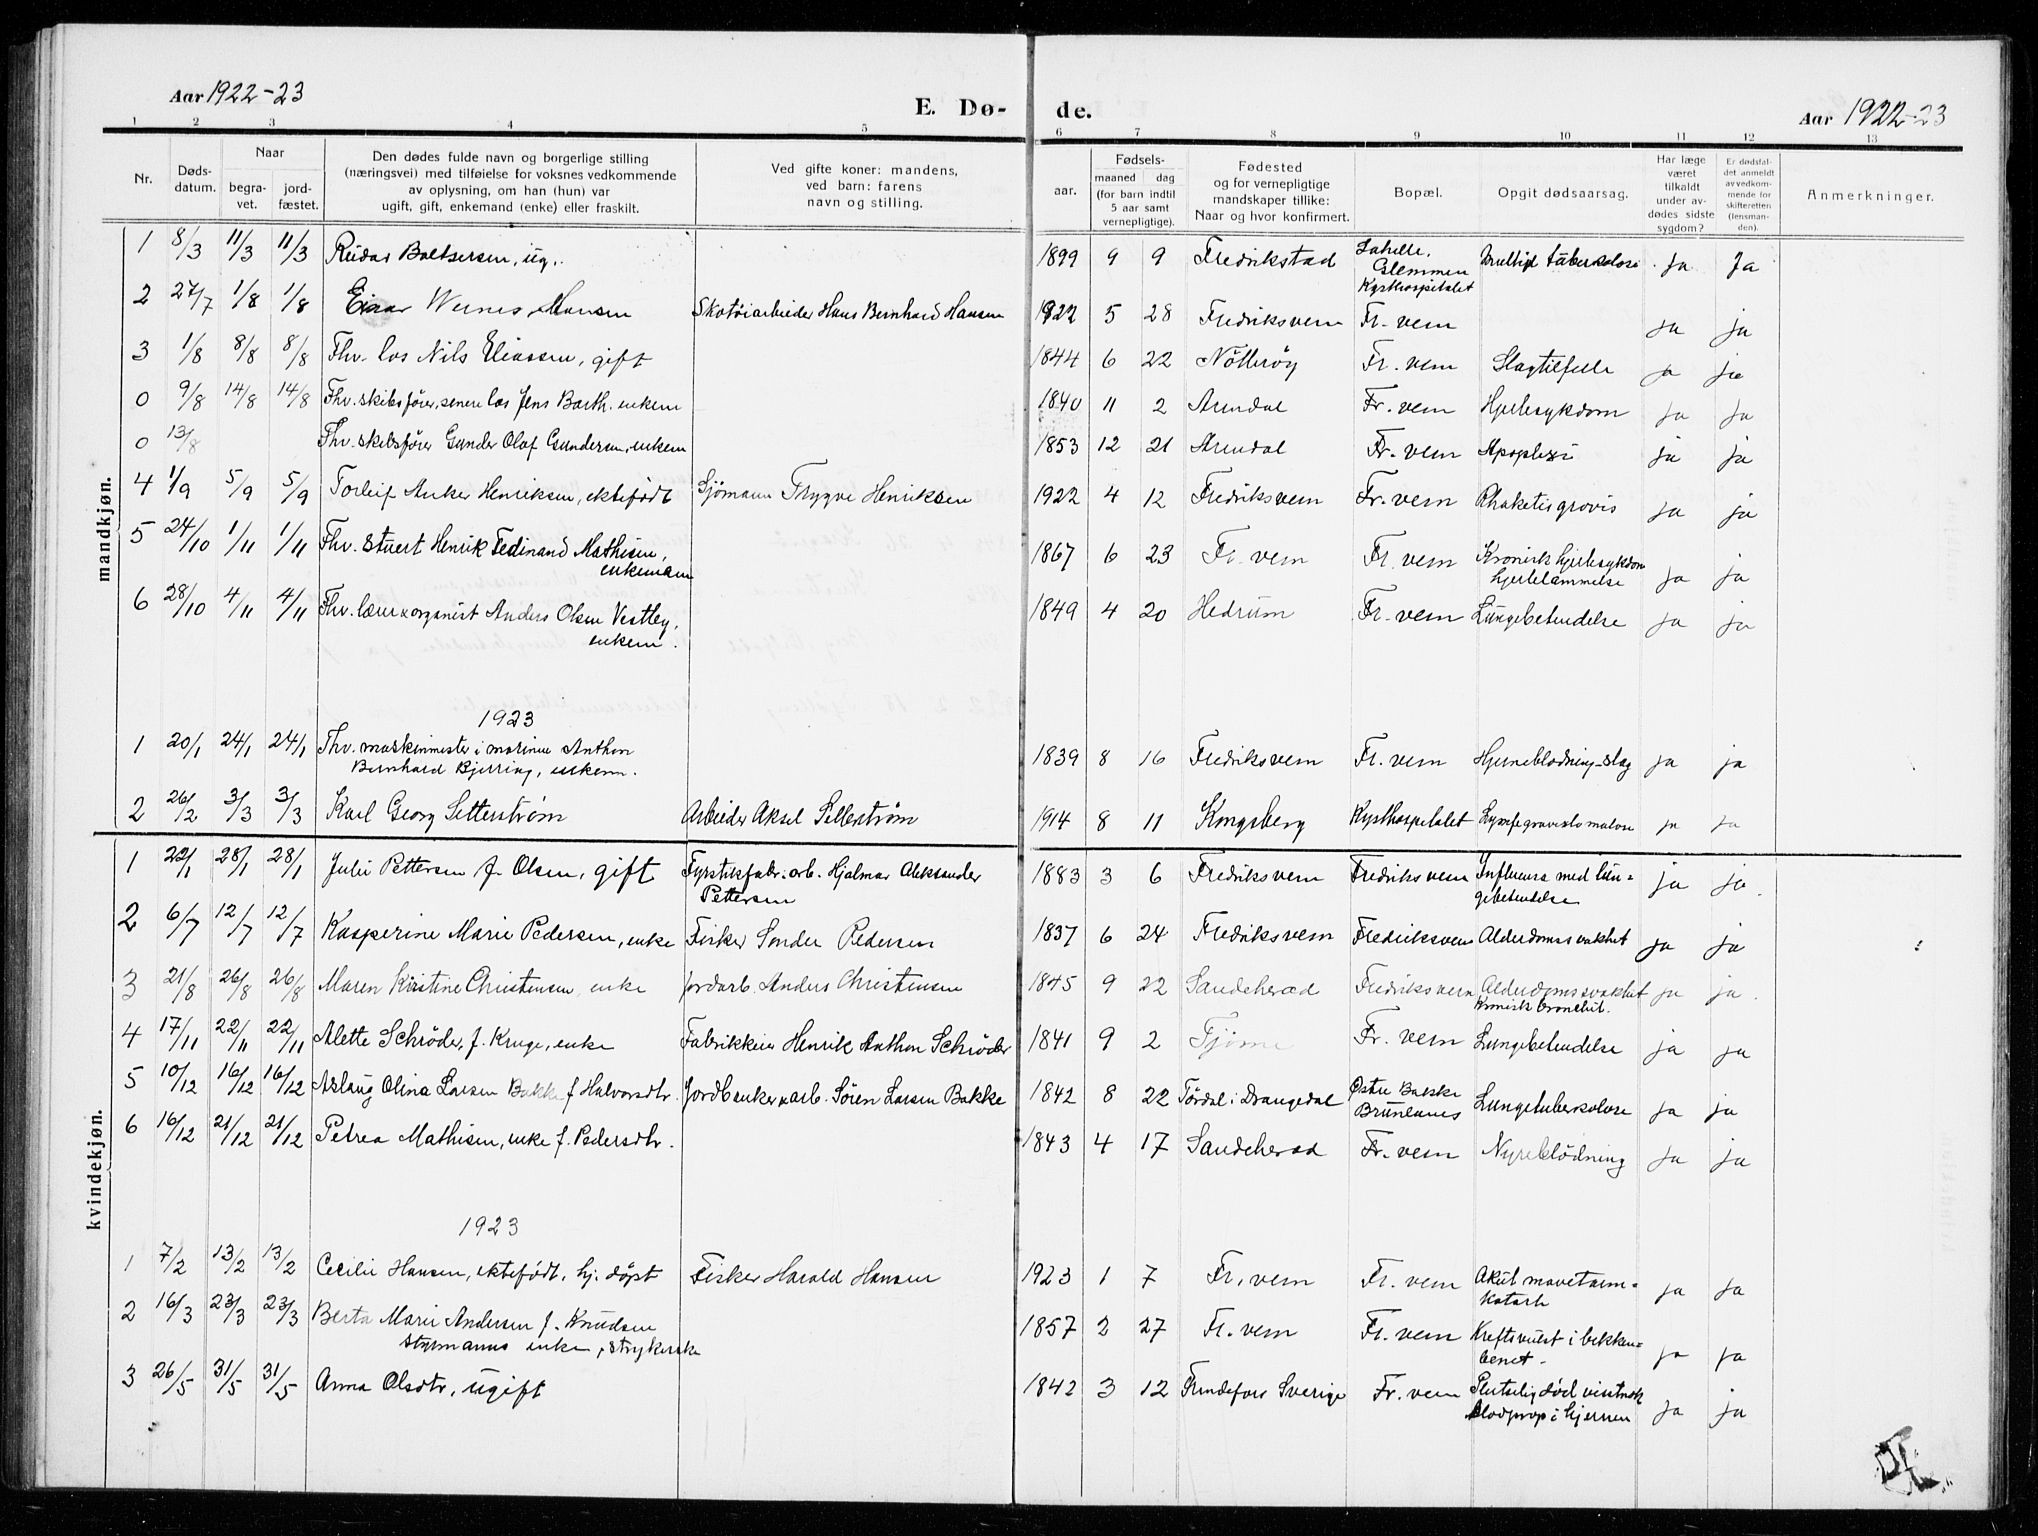 Aar 1922-23
E. Dø-
de.
Aar 1922-23
1 2 3 4 5 6 7 8 9 10 11 12 13
Nr.
Døds-
datum.
Naar
begra-
vet.
jord-
fæstet.
Den dødes fulde navn og borgerlige stilling
(næringsvei) med tilføielse for voksnes vedkommende
av oplysning, om han (hun) var
ugift, gift, enkemand (enke) eller fraskilt.
Ved gifte koner: mandens,
ved barn: farens
navn og stilling.
aar.
Fødsels-
maaned dag
(for barn indtil
5 aar samt
vernepligtige).
Fødested
og for vernepligtige
mandskaper tillike:
Naar og hvor konfirmert.
Bopæl.
Opgit dødsaarsag.
Har læge
været
tilkaldt
under av-
dødes sidste
sygdom?
Er dødsfal-
det anmeldt
av vedkom-
mende for
skifteretten
(lensman-
den).
Anmerkninger.
mandkjøn.
1 8/3 11/3 11/3 Reidar Baltsersen, ug. 1899 9 9 Fredrikstad Glemmen Kysthospitalet tuberkulose ja Ja
2 27/7 1/8 1/8 Einar Werner Hansen Skotøiarbeider Hans Bernhard Hansen 1922 5 28 Fredriksvern Fr. vern ja ja
3 1/8 8/8 8/8 Fhv. los Nils Eliassen, gift 1844 6 22 Nötterøy Fr. vern Slagtilfelle ja ja
0 9/8 14/8 14/8 Fhv. skibsfører, senere los Jens Barth. enkem 1840 11 2 Arendal Fr. vern Hjertesykdom ja ja
0 13/8 Fhv. skibsfører Gunder Olaf Gundersen, enkem 1853 12 21 Arendal Fr. vern Apoplexi ja ja
4 1/9 5/9 5/9 Torleif Anker Henriksen, ektefødt Sjømann Trygve Henriksen 1922 4 12 Fredriksvern Fr. vern Rhakitis gravis ja ja
5 24/10 1/11 1/11 Fhv. stuert Henrik Ferdinand Mathisen,
enkemann 1867 6 23 Fr. vern Fr. vern Kronisk hjertesykdom
hjertelammelse ja ja
6 28/10 4/11 4/11 Fhv. lærer & organist Anders Olsen Vestley,
enkem. 1849 4 20 Hedrum Fr. vern Lungebetendelse ja ja
1923
1 20/1 24/1 24/1 Fhv. maskinmester i marinen Anthon
Bernhard Bjerring, enkem. 1839 8 16 Fredriksvern Fr. vern Hjerneblødning-slag ja ja
2 26/2 3/3 3/3 Karl Georg Setterstrøm Arbeider Aksel Setterstrøm 1914 8 11 Kongsberg Kysthospitalet ja ja
kvindekjøn.
1 22/1 28/1 28/1 Julie Pettersen f. Olsen, gift Fyrstikfabr. arb. Hjalmar Aleksander
Pettersen 1883 3 6 Fredriksvern Fredriksvern Influensa med lun-
gebetendelse ja ja
2 6/7 12/7 12/7 Kasperine Marie Pedersen, enke Fisker Sonder Pedersen 1837 6 24 Fredriksvern Fredriksvern Alderdomssvakhet ja ja
3 21/8 26/8 26/8 Maren Kirstine Christensen, enke Jordarb. Anders Christensen 1845 9 22 Sandeherad Fredriksvern Alderdomssvakhet
Kronisk bronchit. ja ja
4 17/11 22/11 22/11 Alette Schrøder, f. Kruge, enke Fabrikkeier Henrik Anthon Schrøder 1841 9 2 Tjøme Fr. vern Lungebetendelse ja ja
5 10/12 16/12 16/12 Aslaug Olina Larsen Bakke f Halvorsdtr. Jordbruker & arb. Søren Larsen Bakke 1842 8 22 Tørdal i Drangedal Østre Bakke
Brunlanes Lungetuberkulose ja ja
6 16/12 21/12 21/12 Petrea Mathisen, enke f. Pedersdtr. 1843 4 17 Sandeherad Fr. vern Nyreblödning ja ja
1923
1 7/2 13/2 13/2 Cecilie Hansen, ektefødt, hj. døpt Fisker Harald Hansen 1923 1 7 Fr. vern Fr. vern Akut mavetarm-
katarh ja ja
2 16/3 23/3 23/3 Berta Marie Andersen f. Knudsen
styrmanns enke, strykerske 1857 2 27 Fr. vern Fr. vern Kreftsvulst i bekken-
benet- ja ja
3 26/5 31/5 31/5 Anna Olsdtr, ugift 1842 3 12 Sverige Fr. vern Plutselig død visstnok
blodprop i hjernen ja ja